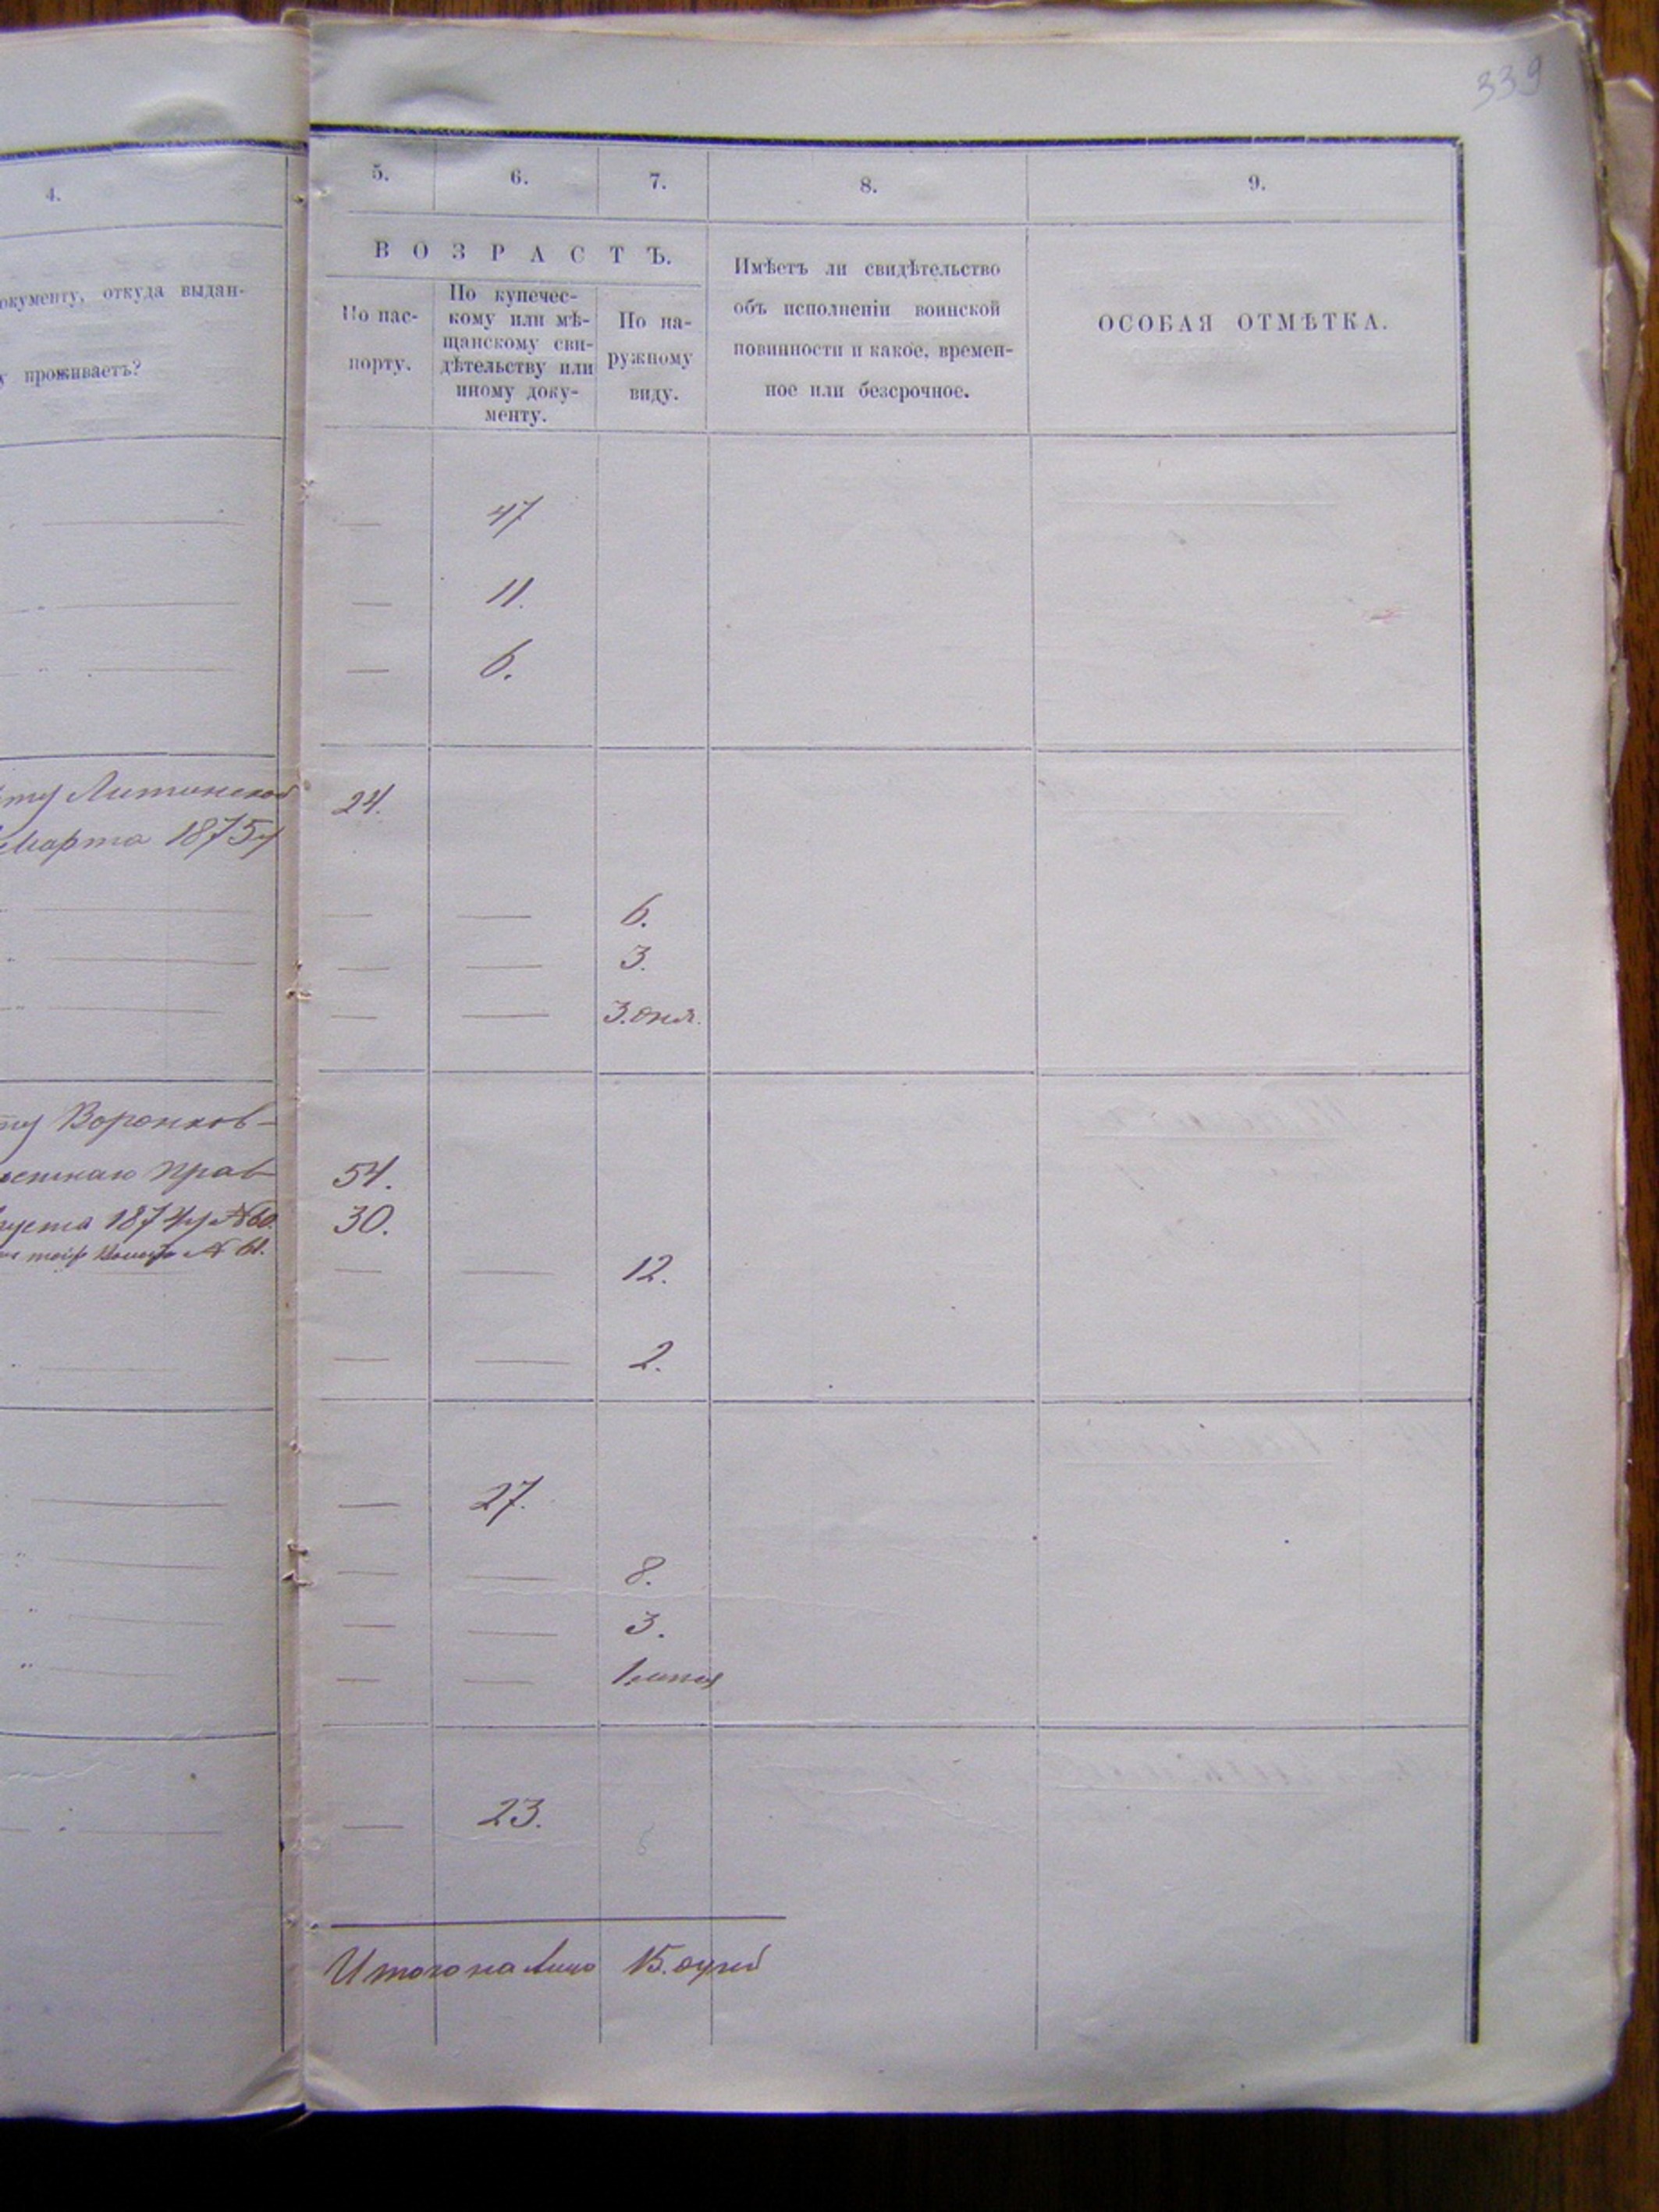 339
4.
5.
6.
7.
8.
9.
ВОЗРАСТЪ.
окументу, откуда выдан-
у проживаетъ?
По пас-
порту.
По купечес-
кому или мѣ-
щанскому сви-
дѣтельству или
иному доку-
менту.
По на-
ружному
виду.
Имѣетъ ли свидѣтельство
объ исполненіи воинской
повинности и какое, времен-
ное или безсрочное.
ОСОБАЯ ОТМѢТКА.
— 47
— 11.
— 6.
24.
Марта 1875 г
— — 6.
— — 3.
— — 3.
ту Воронков-
54.
густа 1874 г № 60. 30.
№ 61.
— — 12.
— — 2.
— 27.
— — 8.
— — 3.
— — 1
— 23.
6
Итого на лицо 15. душ